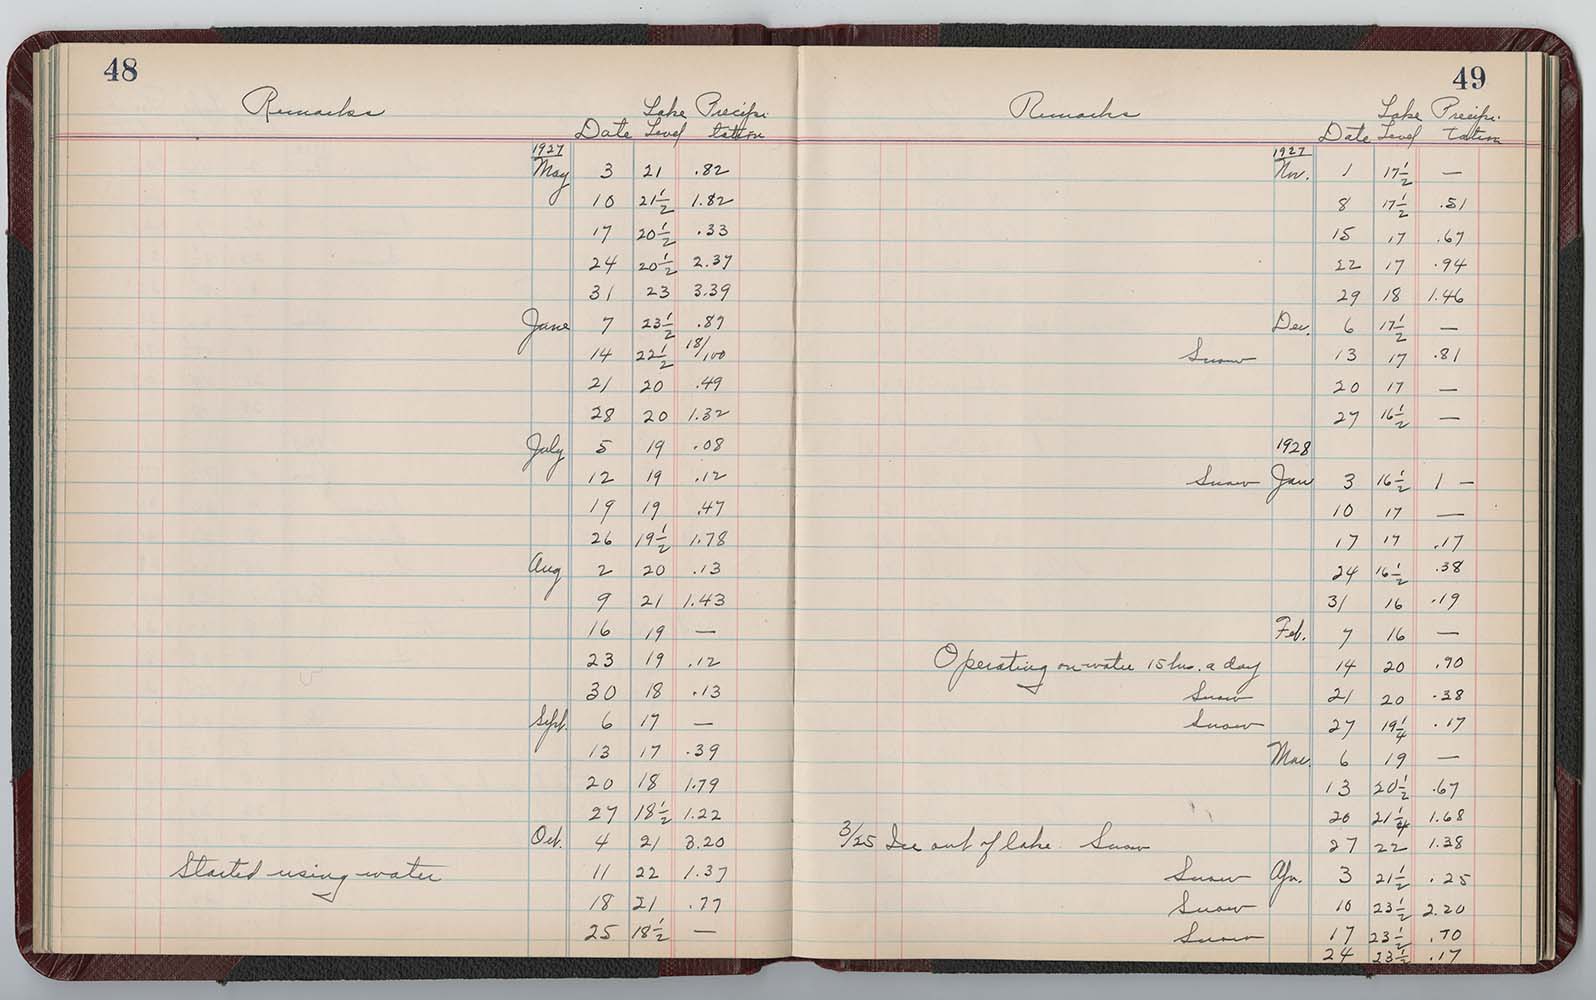 48
Remarks Date Lake Level Precipi-tation
1927
May 3 21 .82
10 21½ 1.82
17 20½ .33
24 20½ 2.37
31 23 3.39
June 7 23½ .89
14 22½ 18/100
21 20 .49
28 20 1.32
July 5 19 .08
12 19 .12
19 19 .47
26 19½ 1.78
Aug 2 20 .13
9 21 1.43
16 19 —
23 19 .12
30 18 .13
Sept. 6 17 —
13 17 .39
20 18 1.79
27 18½ 1.22
Oct. 4 21 3.20
Started using water 11 22 1.37
18 21 .77
25 18½ —
49
Remarks Date Lake Level Precipi-tation
1927
Nov. 1 17½ —
8 17½ .51
15 17 .67
22 17 .94
29 18 1.46
Dec. 6 17½ —
Snow 13 17 .81
20 17 —
27 16½ —
1928
Snow Jan 3 16½ 1 —
10 17 —
17 17 .17
24 16½ .38
31 16 .19
Feb. 7 16 —
Operating on water 15 hrs. a day 14 20 .90
Snow 21 20 .38
Snow 27 19¼ .17
Mar. 6 19 —
13 20½ .67
20 21¼ 1.68
3/25 Ice out of lake. Snow 27 22 1.38
Snow Apr. 3 21½ .25
Snow 10 23½ 2.20
Snow 17 23½ .70
24 23½ .17